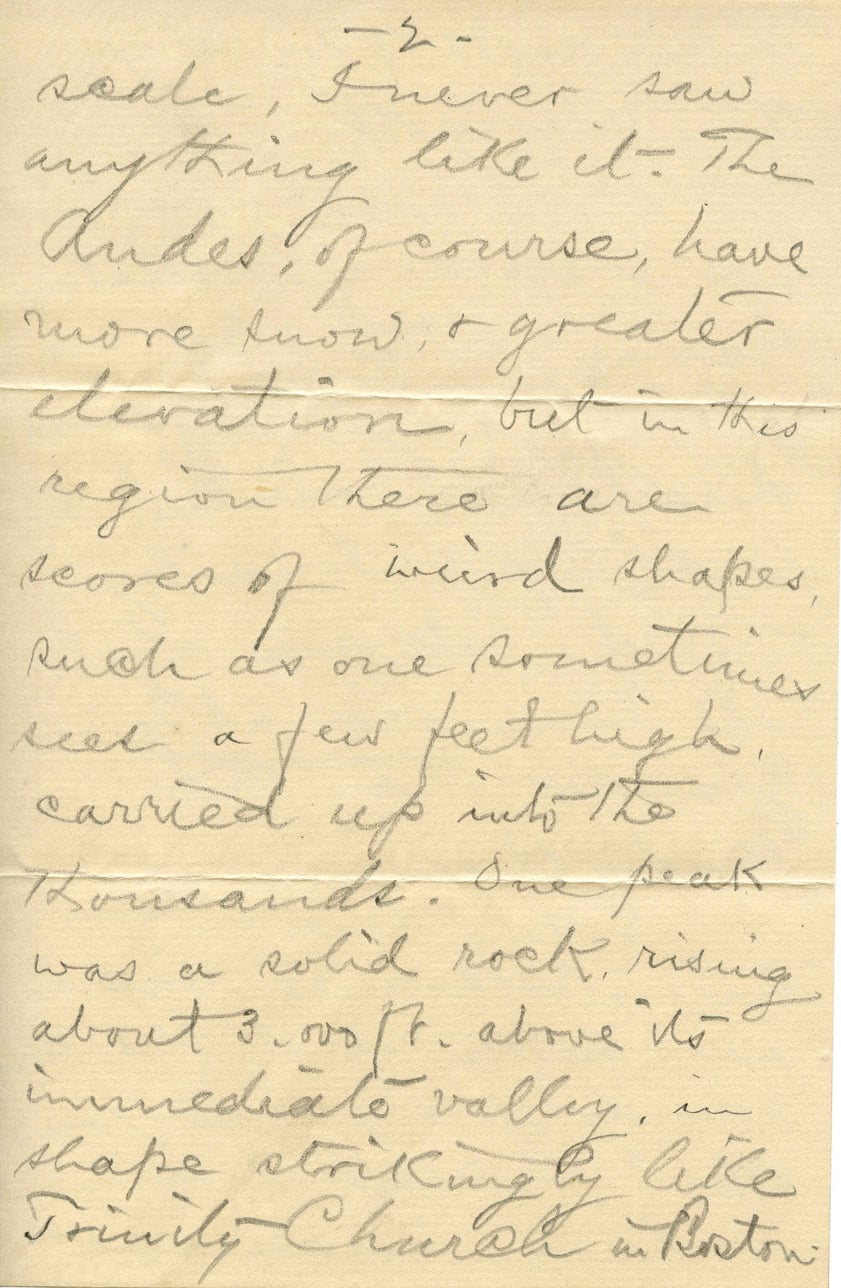 -2-
scale, I never saw
anything like it - The
Andes, of course, have
more snow, & greater
elevation, but in this
region there are
scores of weird shapes,
such as one sometimes
sees a few feet high,
carried up into the
thousands. One peak
was a solid rock, rising
about 3.000 ft. above its
immediate valley, in
shape strikingly like
Trinity Church in Boston.